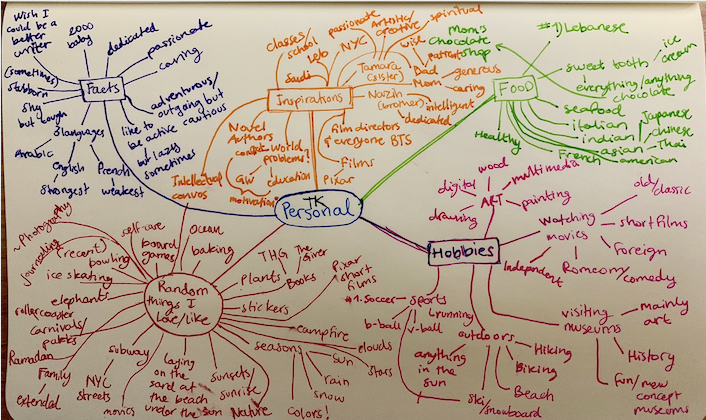 TK
Personal
Facts
Wish I
could be a
better
writer
2000
baby
dedicated
passionate
caring
(sometimes)
stubborn
shy
but tough
3 languages
Arabic
English
strongest
French
weakest
adventurous/
outgoing but
cautious
like to
be active
but lazy
sometimes
Inspirations
classes/
school
Leb
Saudi
NYC
Tamara
(sister)
passionate
Artistic/
creative
spiritual
wise
patriarch
Dad
Mom
generous
caring
(brother)
intelligent
dedicated
Film directors
& everyone BTS
Films
Pixar
Novel
Authors
world
problems!
GW
education
motivation
Intellectual
convos
Food
#1) Lebanese
Mom's
Chocolate
shop
sweet tooth
ice
cream
everything/anything
chocolate
seafood
italian
indian
asian
Japanese
Chinese
Thai
French
american
Healthy
Hobbies
ART
digital
drawing
wood
multimedia
painting
watching
movies
old/classic
short films
Foreign
Romcom/comedy
Independent
visiting
museums
mainly
art
History
fun/new
concept
museums
sports
#1. Soccer
b-ball
v-ball
running
outdoors
anything
in the
sun
Hiking
Biking
Beach
ski/snowboard
Random
things I
love/like
~Photography
journaling
(recent)
bowling
self-care
board
games
ocean
baking
ice skating
elephants
rollercoaster
carnivals/
parks
Ramadan
Family
extended
NYC
streets
subway
movies
laying
on the
sand at
the beach
under the sun
sunsets/
sunrise
Nature
seasons
colors!
snow
rain
sun
clouds
stars
campfire
stickers
plants
Books
THG
The
Giver
Pixar
short
films